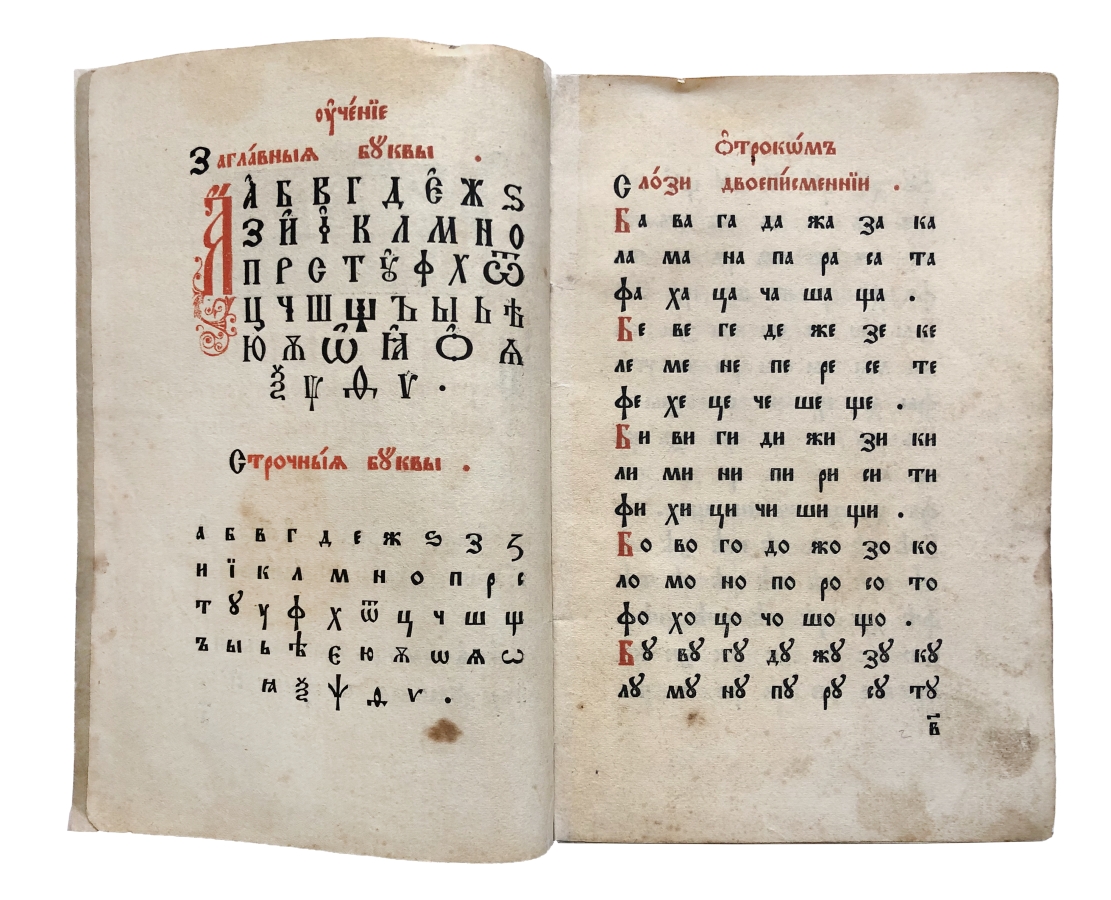 оу҆че́нїе
Загла́вныѧ бꙋквы .
А҆ Б В Г Д Є҆ Ж Ѕ
З И҆ І҆ К Л М Н О
П Р С Т Ꙋ҆ Ф Х Ѿ
Ц Ч Ш Щ Ъ Ы Ь Ѣ
Ю Ѫ Ѡ҆ Ꙗ҆ Ѻ҆ Ѧ
Ѯ Ѱ Ѳ Ѵ .
Строчны́ѧ бꙋквы .
а б в г д е ж ѕ з ꙁ
и ї к л м н о п р с
т ꙋ у ф х ѿ ц ч ш щ
ъ ы ь ѣ є ю ѫ ѡ ѧ ѡ
ꙗ ѯ ѱ ѳ ѵ .
ѻ҆трокѡ́мъ
Сло́зи двоепи́сменнїи .
Ба ва га да жа за ка
ла ма на па ра са та
фа ха ца ча ша ща .
Бе ве ге де же зе ке
ле ме не пе ре се те
фе хе це че ше ще .
Би ви ги ди жи зи ки
ли ми ни пи ри си ти
фи хи ци чи ши щи .
Бо во го до жо зо ко
ло мо но по ро со то
фо хо цо чо шо що .
Бꙋ вꙋ гꙋ дꙋ жꙋ зꙋ кꙋ
лꙋ мꙋ нꙋ пꙋ рꙋ сꙋ тꙋ
в҃